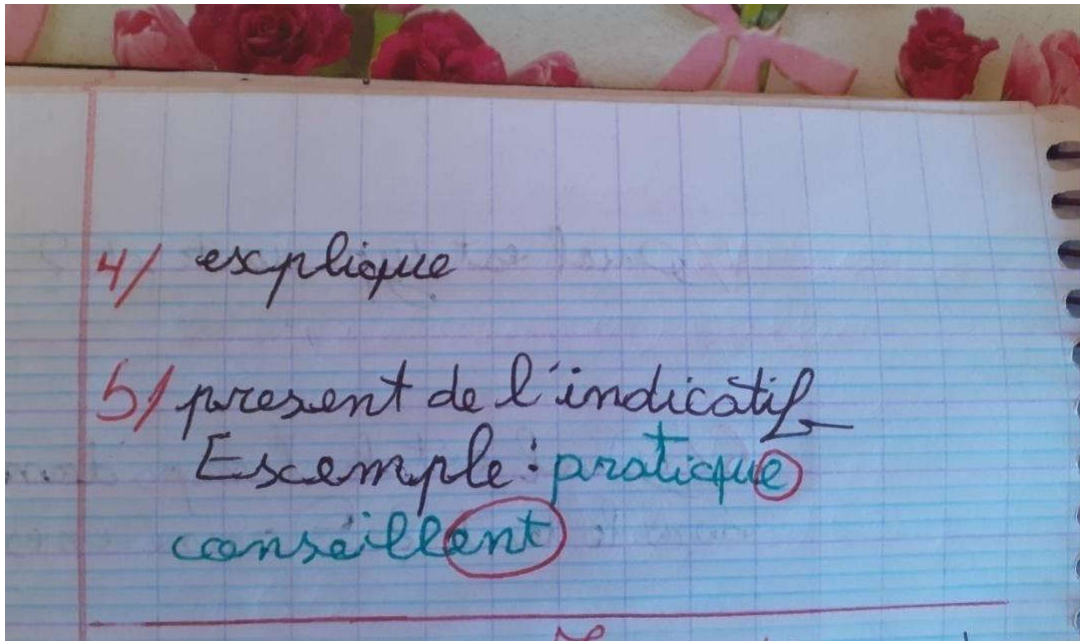 4/ explique
5/ present de l'indicatif
Exemple : pratique
conseillent